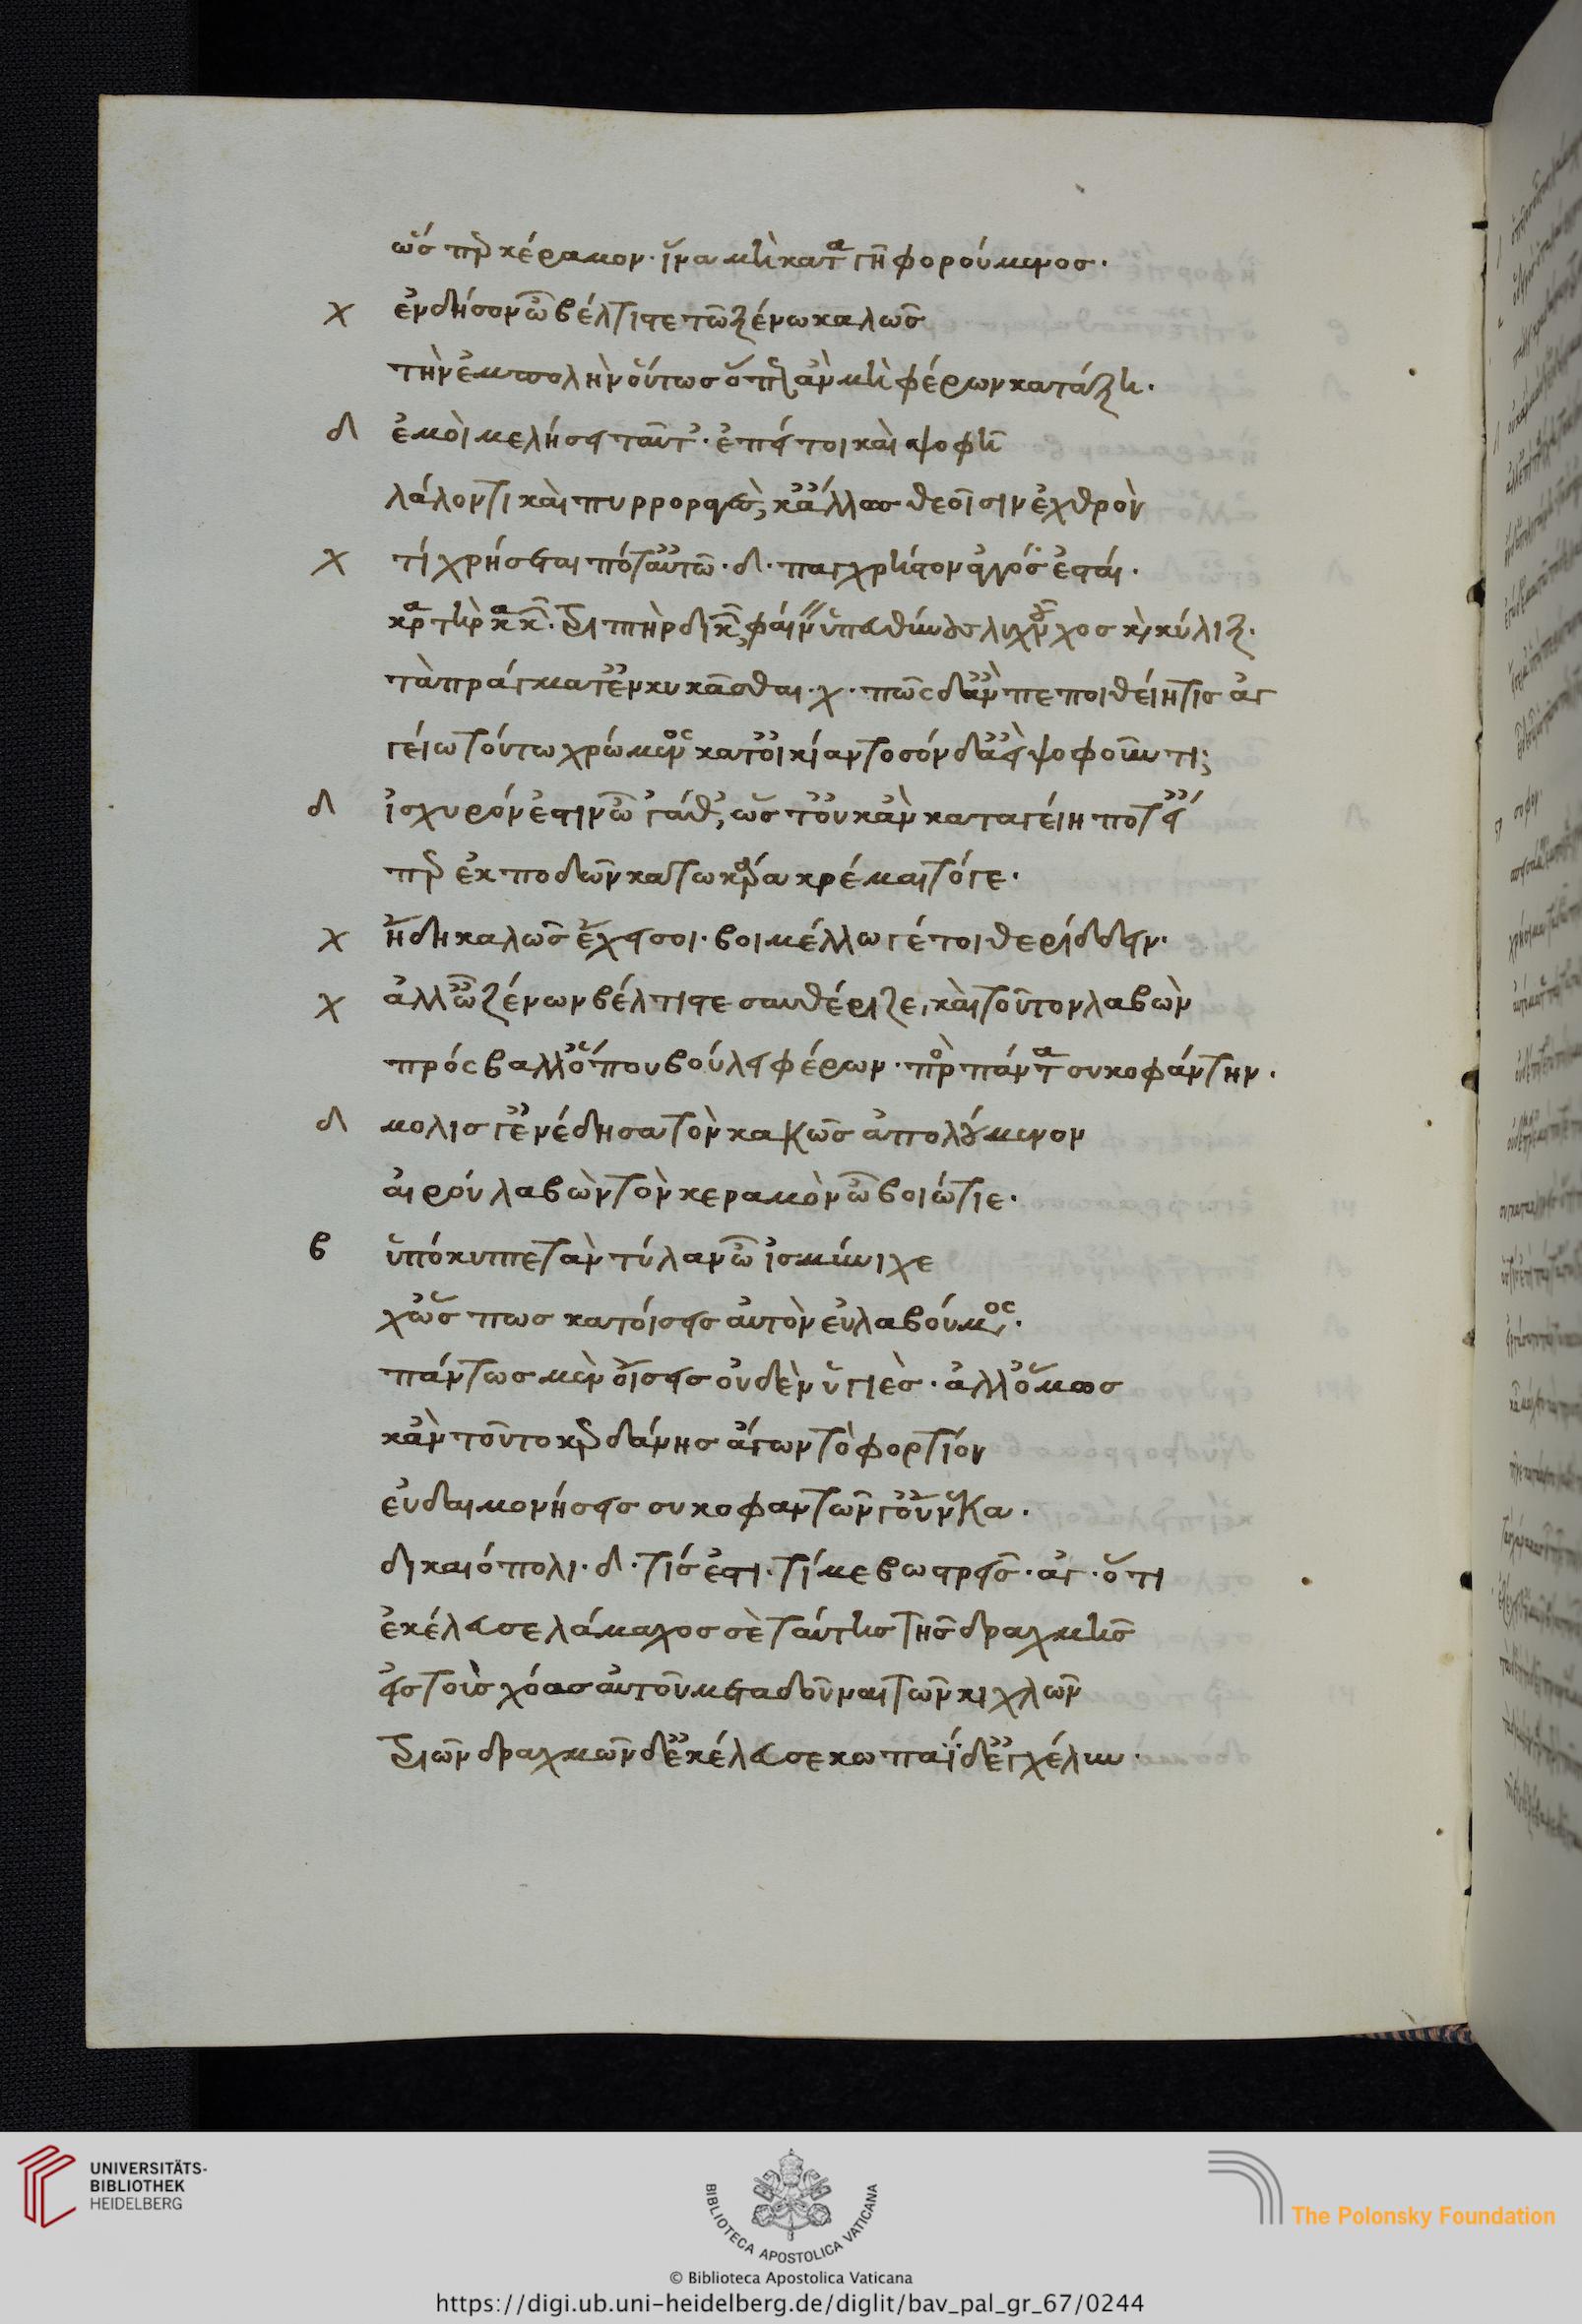 ὥσπερ κέραμον. ἵνα μὴ καταγῆ φορούμενος.
χ ἔνδησον ὦ βέλτιστε τῶ ξένω καλῶς
τὴν ἐμπολὴν οὕτως ὅπως ἂν μὴ φέρων κατάξη.
δ ἐμοὶ μελήσει ταῦτ'. ἐπεί τοι καὶ ψοφεῖ
λάλον τι καὶ πυρρορραγὲς, κἄλλως θεοῖσιν ἐχθρὸν
χ τί χρήσεταί ποτ' αὐτῶ. δ. πάγχρηστον ἄγγος ἔσται.
κρατὴρ κακῶν. τριπτὴρ δικῶν, φαίνειν ὑπευθύνους λυχνοῦχος καὶ κύλιξ.
τὰ πράγματ' ἐνκυκᾶσθαι. χ. πῶς δ' ἂν πεποιθείη τις ἀγ
γείω τούτω χρώμενος κατ' οἰκίαν τοσόνδ' ἀεὶ ψοφοῦντι;
δ ἰσχυρόν ἐστιν ὦ 'γάθ', ὥστ' οὐκ ἂν καταγείη ποτ' εἴ
περ ἐκ ποδῶν κάτω κάρα κρέμαιτό γε.
χ ἤδη καλῶς ἔχει σοι. βοι μέλλω γέ τοι θερίδδειν.
χ ἀλλ' ὦ ξένων βέλτιστε συνθέριζε, καὶ τοῦτον λαβὼν
πρόσβαλλ' ὅπου βούλει φέρων. πρὸς πάντα συκοφάντην.
δ μόλις γ' ἐνέδησα τὸν κακῶς ἀπολούμενον
αἴρου λαβὼν τὸν κέραμον ὦ βοιώτιε.
β ὑπόκυπτε τὰν τύλαν ὦ ἰσμήνιχε
χὥπως κατοίσεις αὐτὸν εὐλαβούμενος.
πάντως μὲν οἴσεις οὐδὲν ὑγιὲς. ἀλλ' ὅμως
κἂν τοῦτο κερδάνης ἄγων τὸ φορτίον
εὐδαιμονήσεις συκοφαντῶν γ' οὕνεκα.
δικαιόπολι. δ. τίς ἔστι. τί με βωστρεῖς. ἀγ. ὅτι
ἐκέλευσε λάμαχός σε ταύτης τῆς δραχμῆς
εἰς τοὺς χόας αὐτοῦ μεταδοῦναι τῶν κιχλῶν
τριῶν δραχμῶν δ' ἐκέλευσε κωπαΐδ' ἔγχελυν.
UNIVERSITÄTS-
BIBLIOTHEK
HEIDELBERG
BIBLIOTECA APOSTOLICA VATICANA
The Polonsky Foundation
© Biblioteca Apostolica Vaticana
https://digi.ub.uni-heidelberg.de/diglit/bav_pal_gr_67/0244